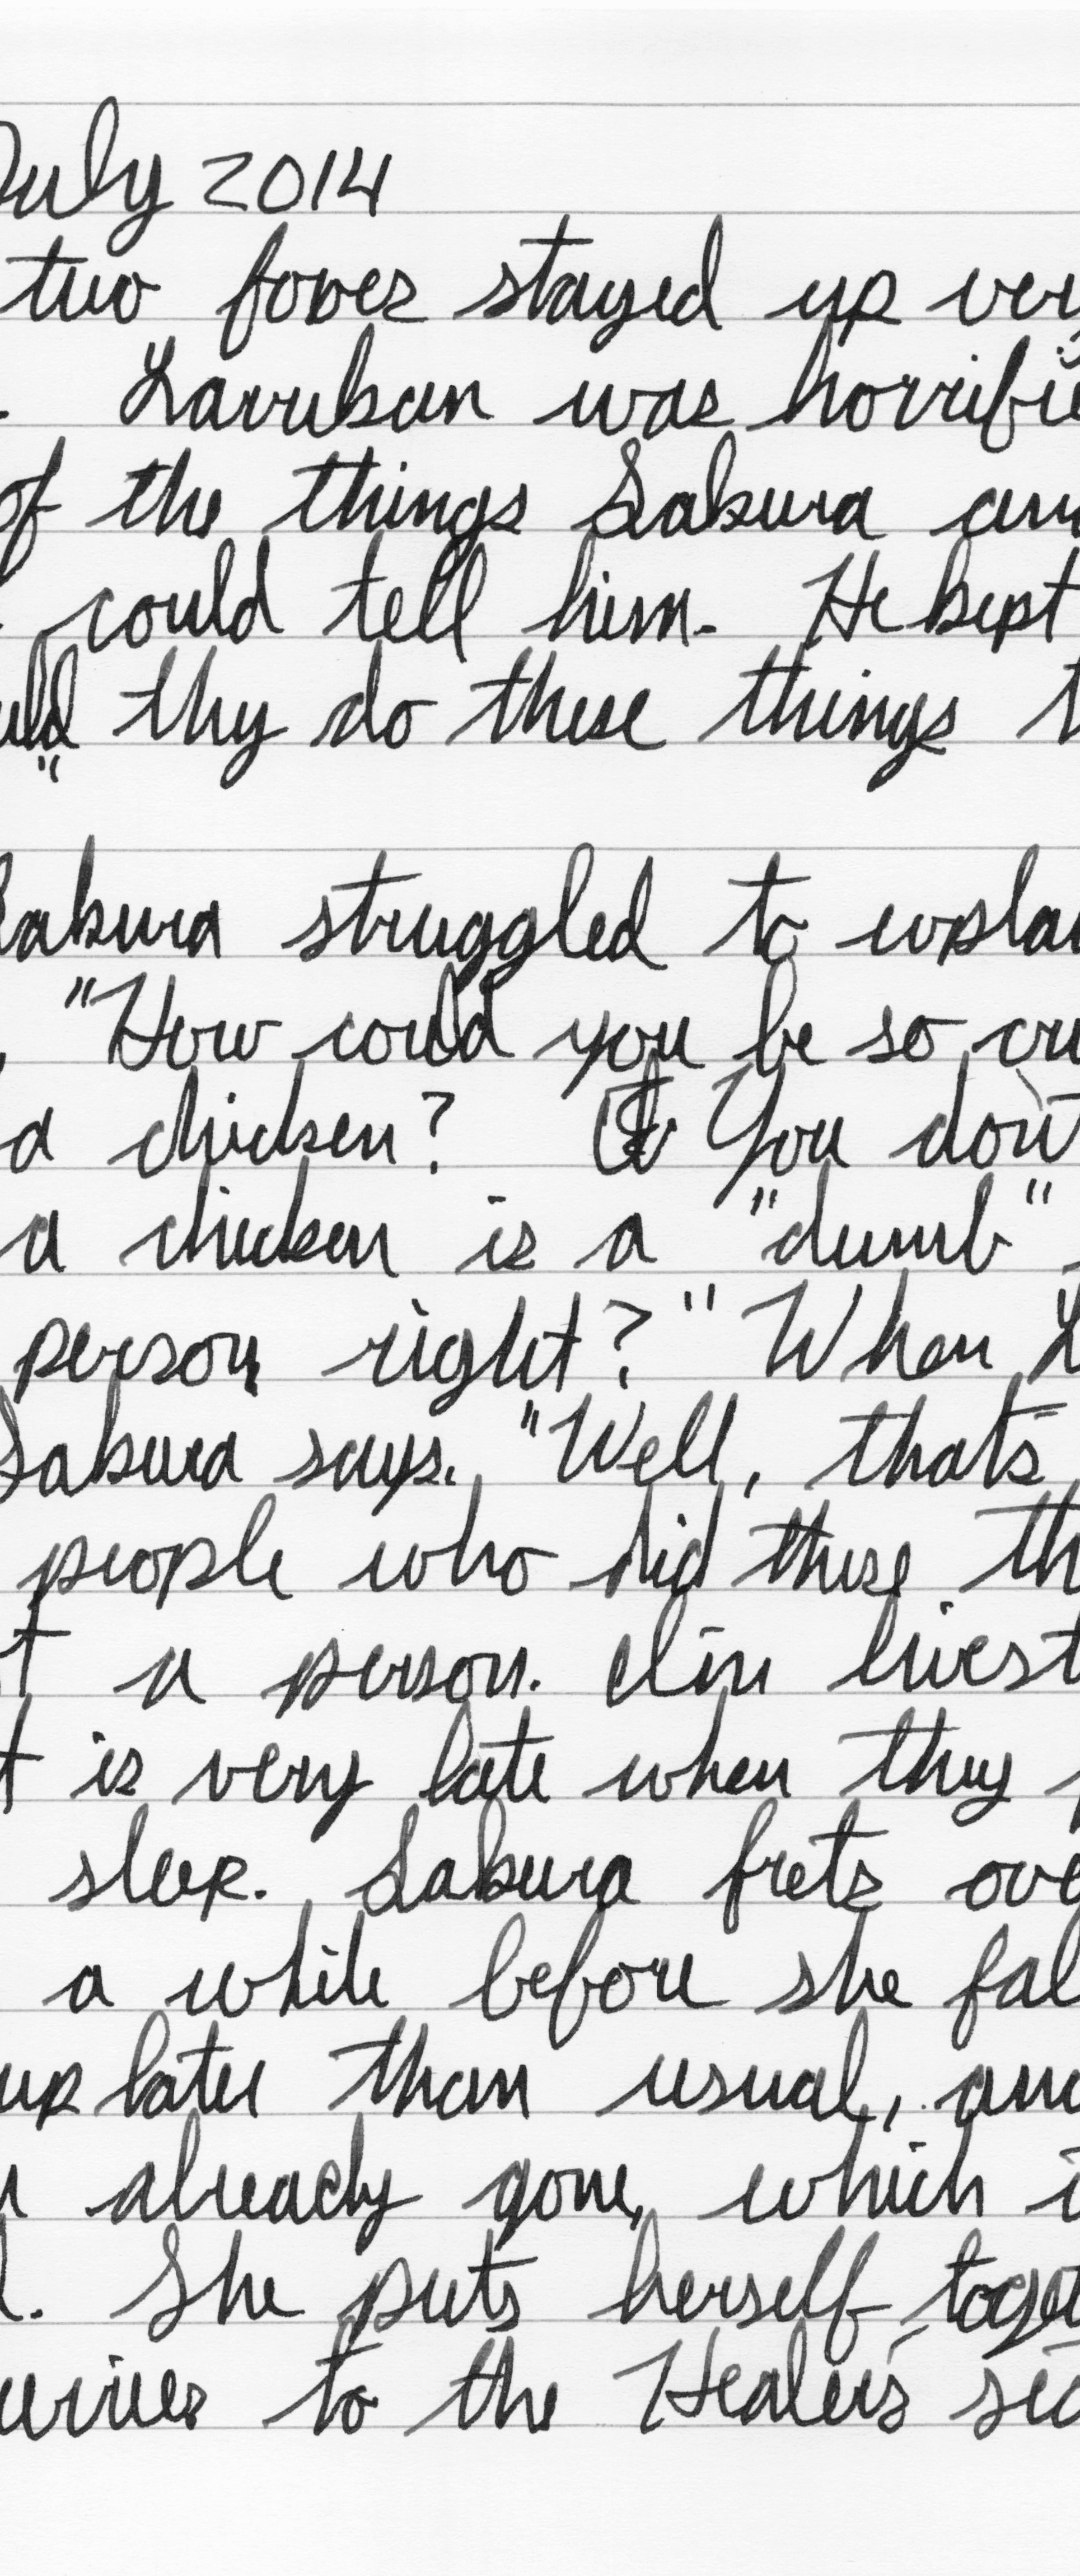 July 2014
two foxes stayed up ver
. Larrukan was horrifie
of the things Sakura an
could tell him. He kept
uld they do these things t
"
Sakura struggled to explai
"How could you be so cru
a chicken? You don't
a chicken is a "dumb"
person right?" When L
Sakura says. "Well, thats
people who did these th
t a person. elin livest
t is very late when they
sleep. Sakura frets ove
a while before she fal
up later than usual, and
already gone, which i
d. She puts herself toget
urries to the Healer's sid